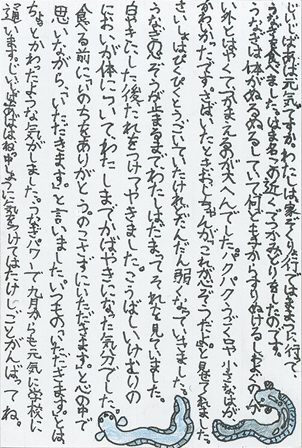 じいじ、ばあばは元気ですか。わたしは、家ぞくりょ行で、はままつに行って、
うなぎを食べました。はまなこの近くでつかみどりをしたのです。
うなぎは、体がぬるぬるしていて、何ども手からすりぬけるし、およぐのが
い外とはやくてつかまえるのが大へんでした。パクパクうごく口や小さなはが
かわいかったです。さばいたとき、おじちゃんが「これが心ぞうだよ。」と見せてくれました。
さいしょはぴくぴくとうごいていたけれど、だんだん弱くなっていきました。
うなぎの心ぞうが止まるまでわたしはだまってそれを見ていました。
白やきにした後、たれをつけてやきました。こうばしいけむりの
においが体についてわたしまでかばやきになった気分でした。
食る前に「いのちをありがとう。のこさずにいただきます。」と心の中で
思いながら、「いただきます。」と言いました。いつもの「いただきます。」とは、
ちょっとかわったような気がしました。うなぎパワーで九月からも元気に学校に
通います。じいじ、ばあばもねっ中しょうに気をつけてはたけしごとがんばってね。